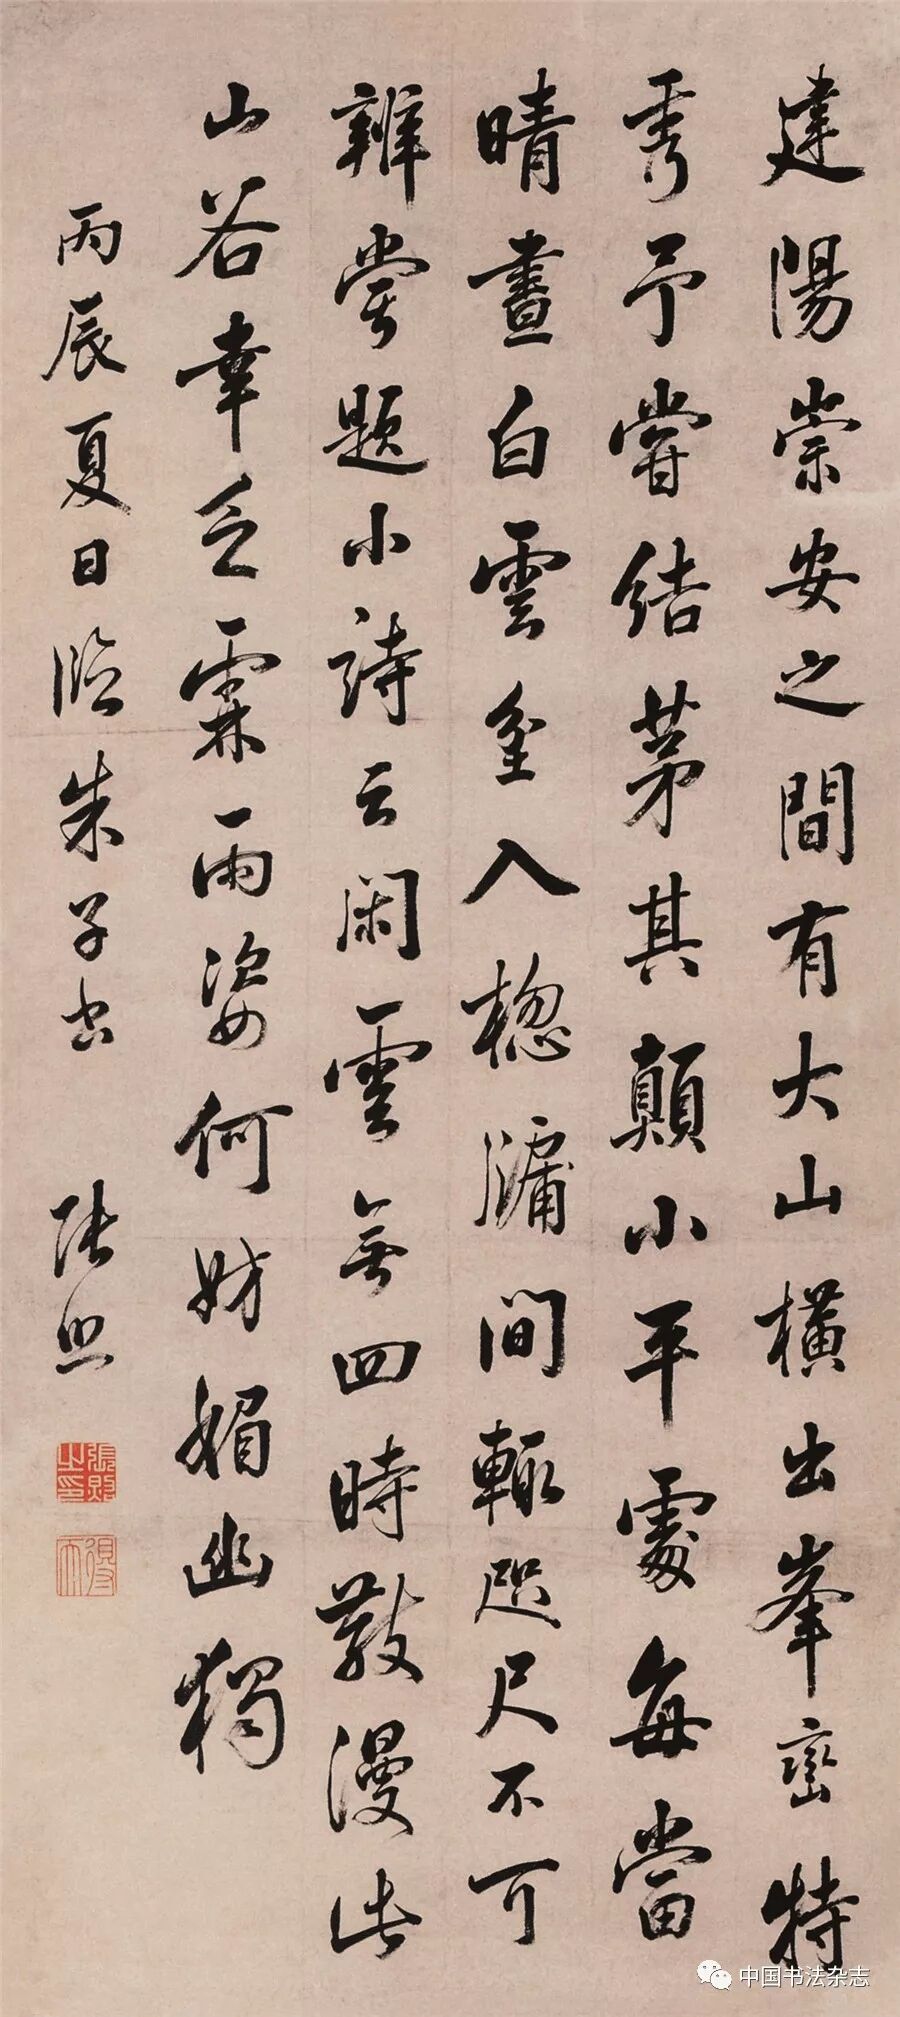 建陽崇安之間有大山橫出峯巒特
秀予嘗結茅其顛小平處每當
晴晝白雲坌入牕牖間輒咫尺不可
辨嘗題小詩云閑雲無四時散漫此
山谷幸乏霖雨姿何妨媚幽獨
丙辰夏日臨朱子書 張照
張照之印
得天
中国书法杂志